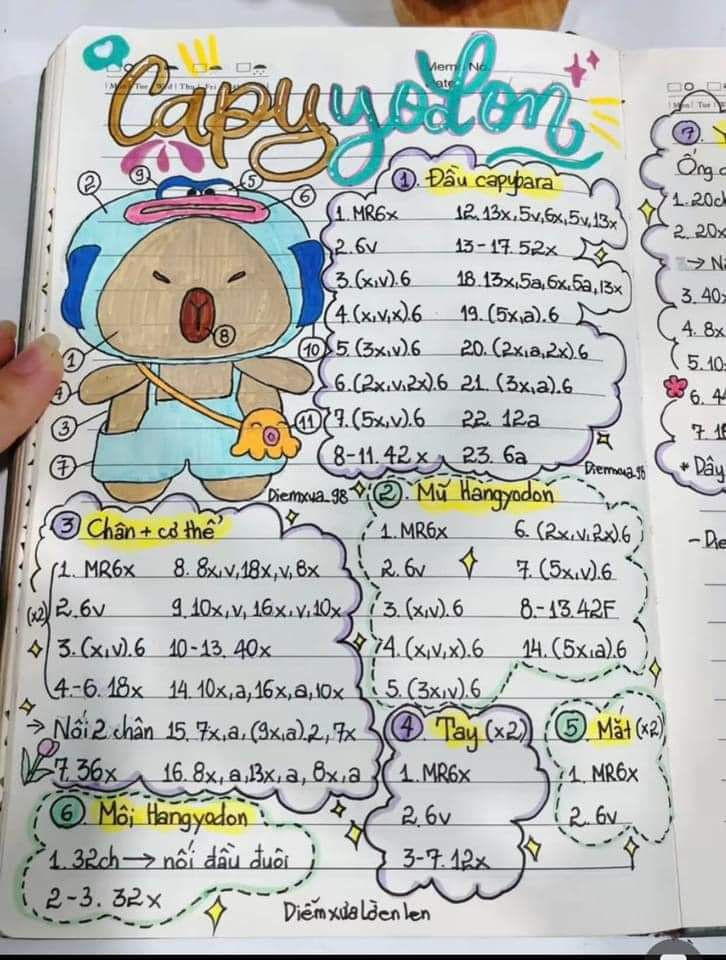 Capyyodon
Mon Tue Wed Thu Fri
Memo No.
Date
① Đầu capybara
1. MR6x
2. 6v
3. (x,v).6
4. (x,v,x).6
5. (3x,v).6
6. (2x,v,2x).6
7. (5x,v).6
8-11. 42x
12. 13x,5v,6x,5v,13x
13-17. 52x
18. 13x,5a,6x,5a,13x
19. (5x,a).6
20. (2x,a,2x).6
21. (3x,a).6
22. 12a
23. 6a
Diemxua.98
2 9 5 6 8 10 1 4 3 11 7
Diemxua.98
② Mũ Hangyodon
1. MR6x
2. 6v
3. (x,v).6
4. (x,v,x).6
5. (3x,v).6
6. (2x,v,2x)6
7. (5x,v).6
8.-13. 42F
14. (5x,a).6
③ Chân + cơ thể
(x2)
1. MR6x
2. 6v
3. (x,v).6
4.-6. 18x
→ Nối 2 chân
7. 36x
8. 8x,v,18x,v,8x
9. 10x,v,16x,v,10x
10-13. 40x
14. 10x,a,16x,a,10x
15. 7x,a,(9x,a).2,7x
16. 8x,a,13x,a,8x,a
④ Tay (x2)
1. MR6x
2. 6v
3-7. 12x
⑤ Mắt (x2)
1. MR6x
2. 6v
⑥ Môi Hangyodon
1. 32ch → nối đầu đuôi
2-3. 32x
Diễm xưa Lờen len
Mon Tue
⑦
Ống
1. 20ch
2. 20x
→
3. 40
4. 8x
5. 10
6. 4
7. 1
* Dây